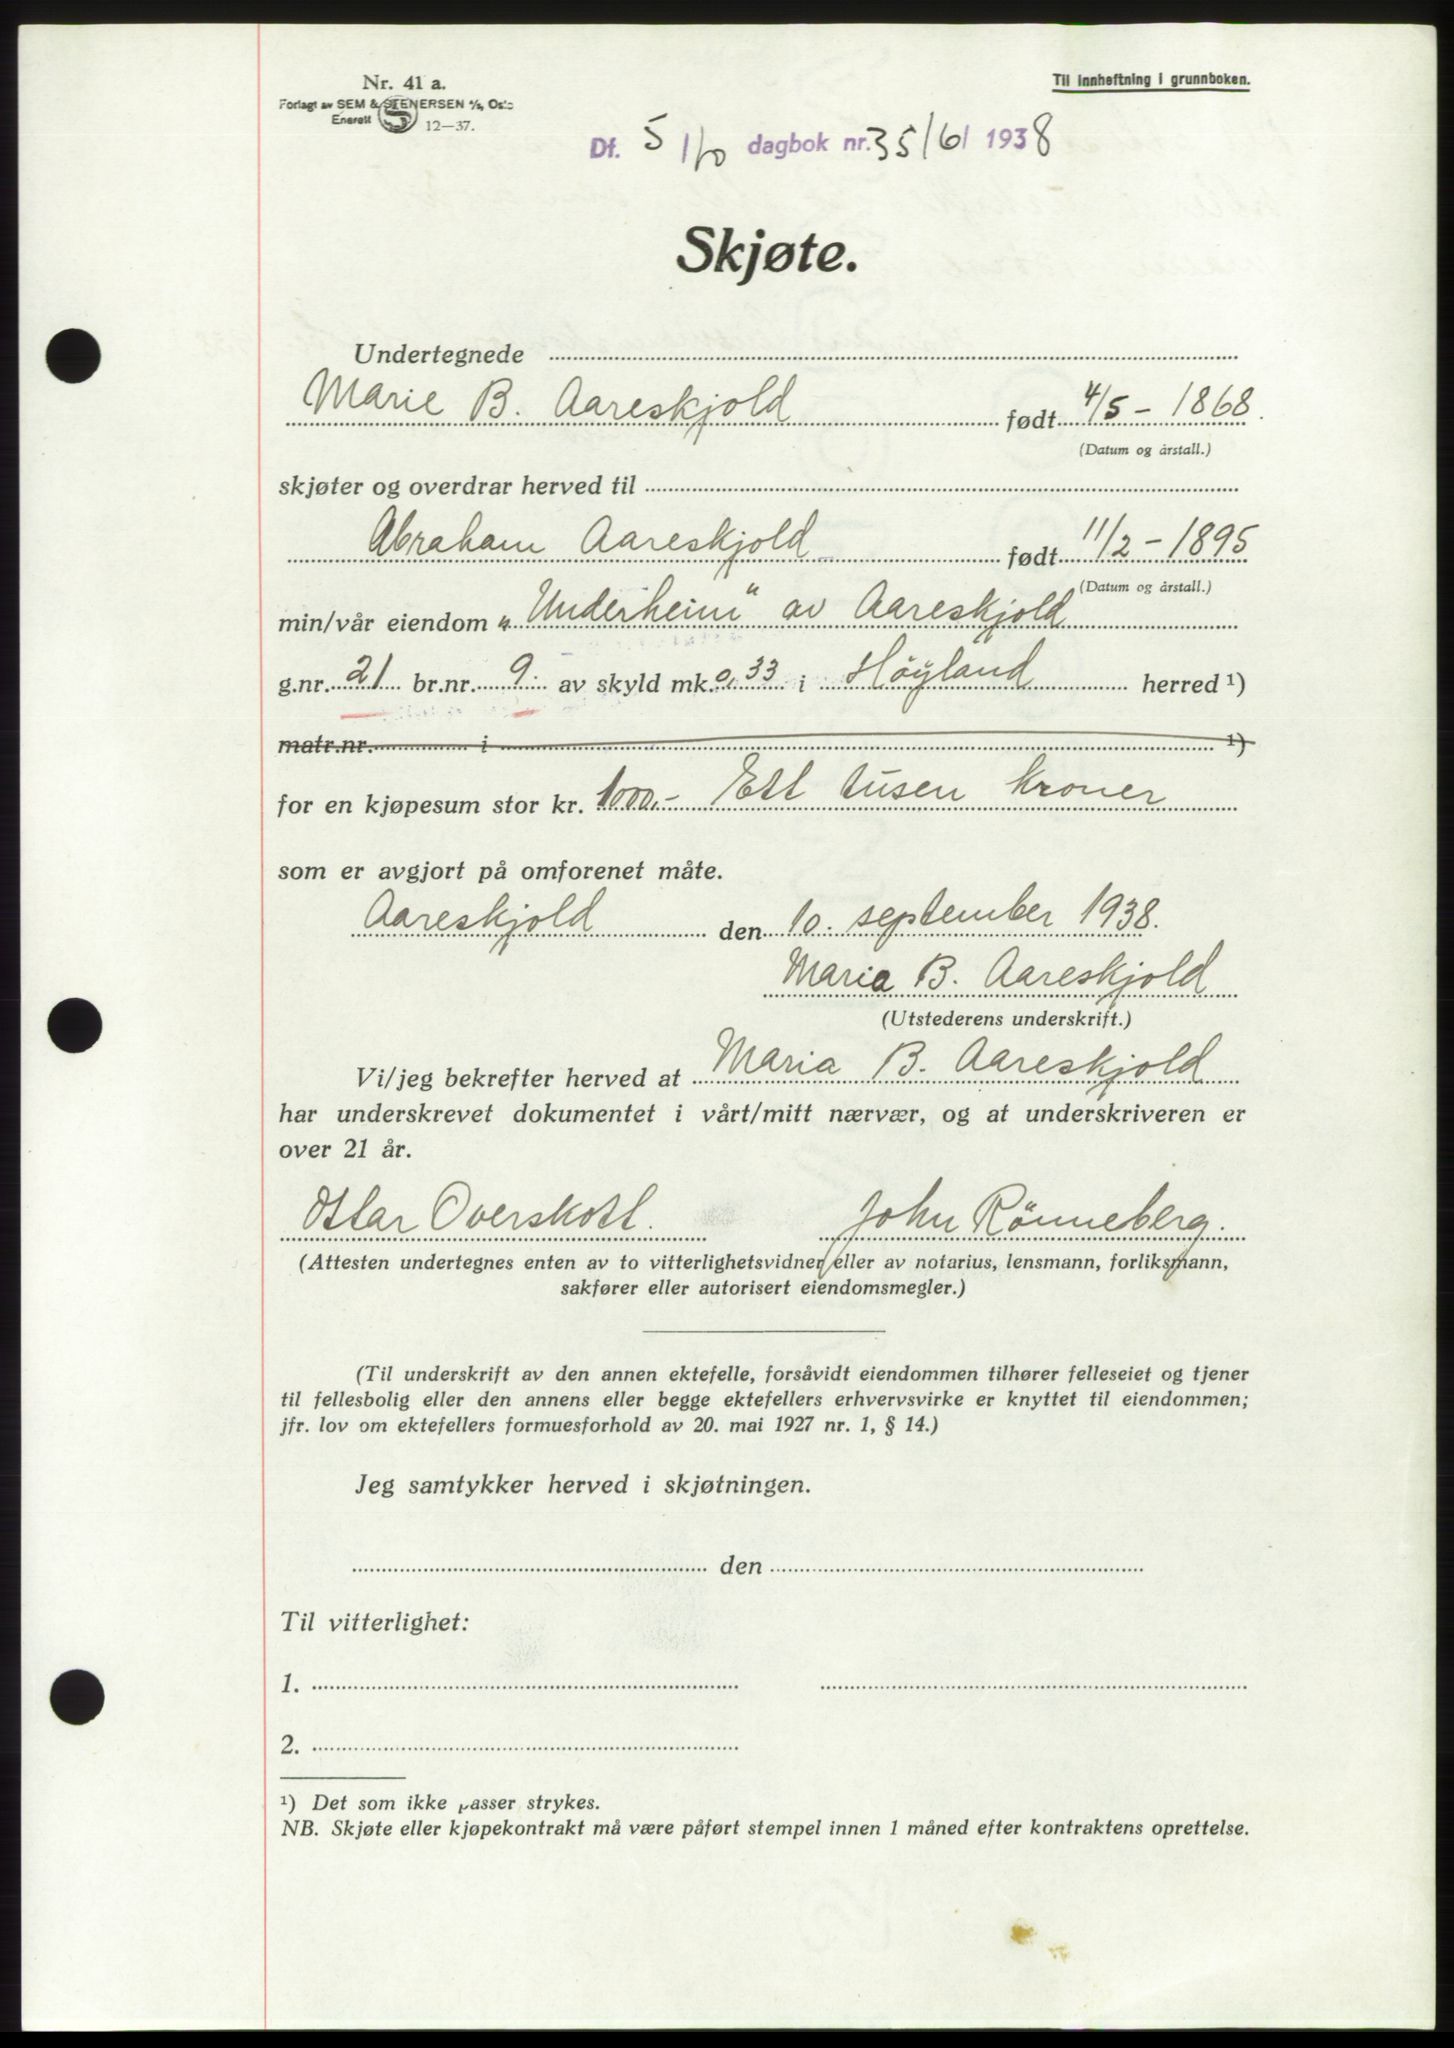 Nr. 41 a.
Forlagt av SEM & STENERSEN A/S, Oslo
Enerett
S
12—37.
Til innheftning i grunnboken.
Df. 5/10 dagbok nr. 3516/ 1938
Skjøte.
Undertegnede
Marie B. Aareskjold født 4/5 - 1868.
(Datum og årstall.)
skjøter og overdrar herved til
Abraham Aareskjold født 11/2 - 1895
(Datum og årstall.)
min/vår eiendom „Underheim" av Aareskjold
g.nr. 21 br.nr. 9. av skyld mk. 0,33 i Høyland herred ¹)
matr.nr. i ¹)
for en kjøpesum stor kr. 1000,- Ett tusen kroner
som er avgjort på omforenet måte.
Aareskjold den 10. september 1938.
Maria B. Aareskjold
(Utstederens underskrift.)
Vi/jeg bekrefter herved at Maria B. Aareskjold
har underskrevet dokumentet i vårt/mitt nærvær, og at underskriveren er
over 21 år.
Ottar Overskott. John Rønneberg.
(Attesten undertegnes enten av to vitterlighetsvidner eller av notarius, lensmann, forliksmann,
sakfører eller autorisert eiendomsmegler.)
(Til underskrift av den annen ektefelle, forsåvidt eiendommen tilhører felleseiet og tjener
til fellesbolig eller den annens eller begge ektefellers erhvervsvirke er knyttet til eiendommen;
jfr. lov om ektefellers formuesforhold av 20. mai 1927 nr. 1, § 14.)
Jeg samtykker herved i skjøtningen.
den
Til vitterlighet:
1.
2.
¹) Det som ikke passer strykes.
NB. Skjøte eller kjøpekontrakt må være påført stempel innen 1 måned efter kontraktens oprettelse.